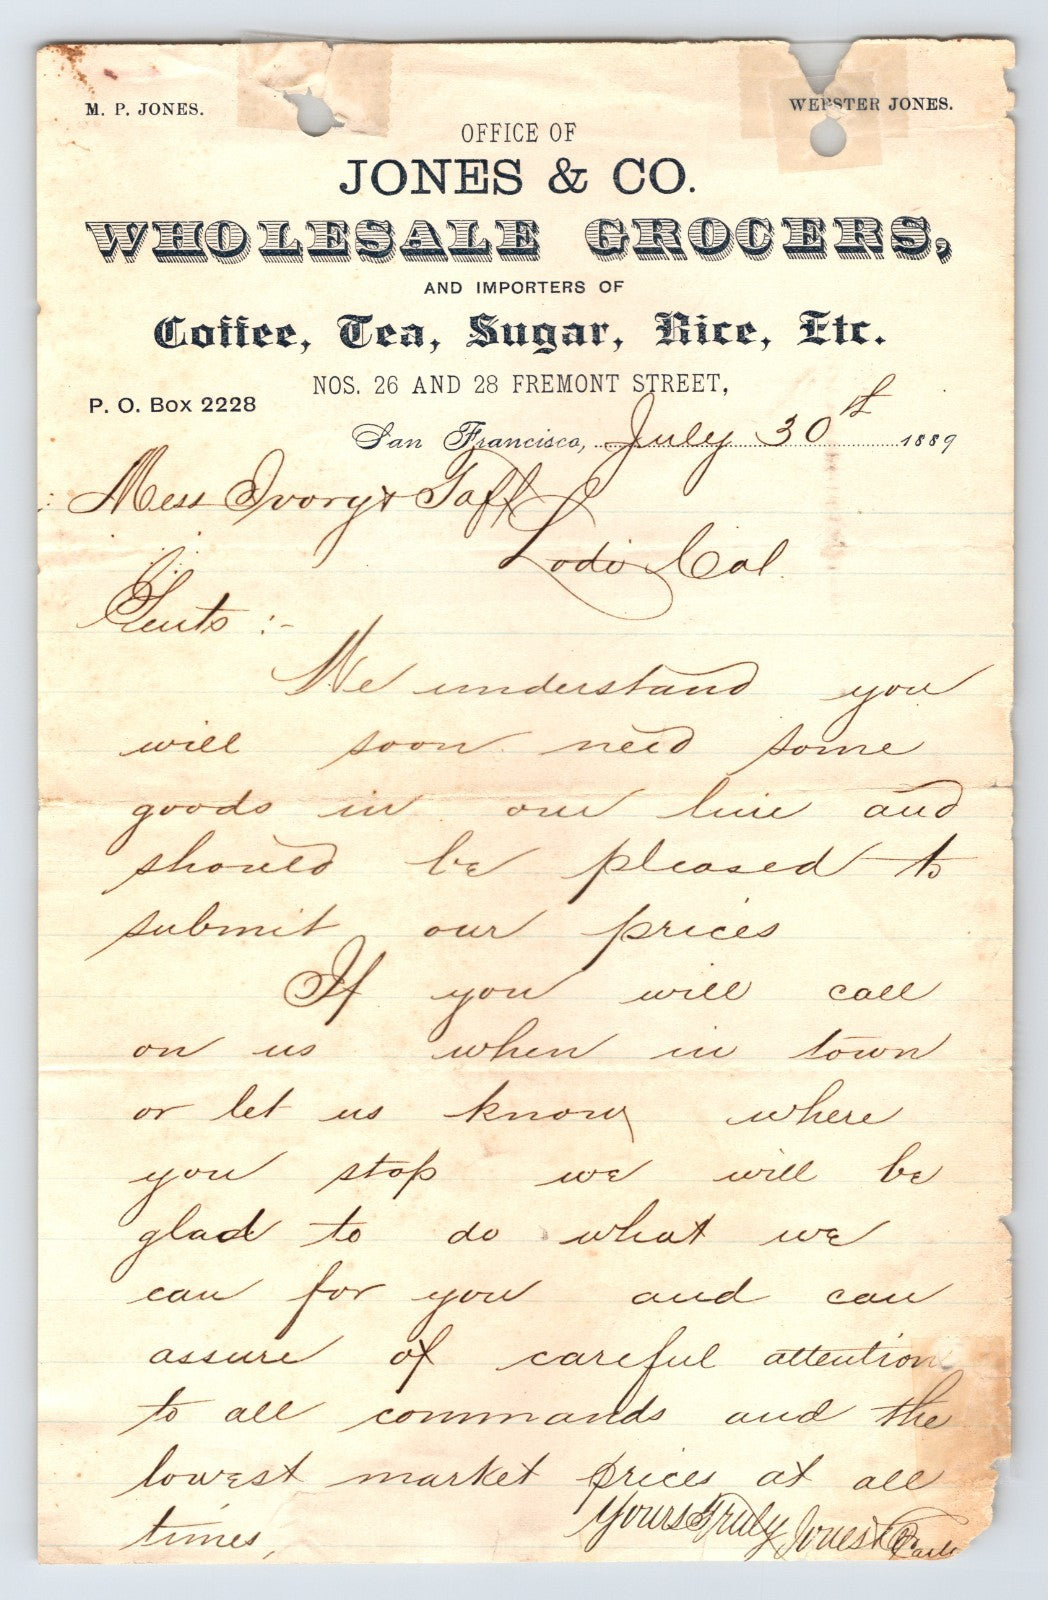 M. P. JONES.
WEBSTER JONES.
OFFICE OF
JONES & CO.
WHOLESALE GROCERS,
AND IMPORTERS OF
Coffee, Tea, Sugar, Rice, Etc.
NOS. 26 AND 28 FREMONT STREET,
P. O. Box 2228
San Francisco, July 30th 1889
Mess Ivory & Taft
Lodi Cal.
Gents :-
We understand you
will soon need some
goods in our line and
should be pleased to
submit our prices
If you will call
on us when in town
or let us know where
you stop we will be
glad to do what we
can for you and can
assure of careful attention
to all commands and the
lowest market prices at all
times,
Yours Truly Jones & Co